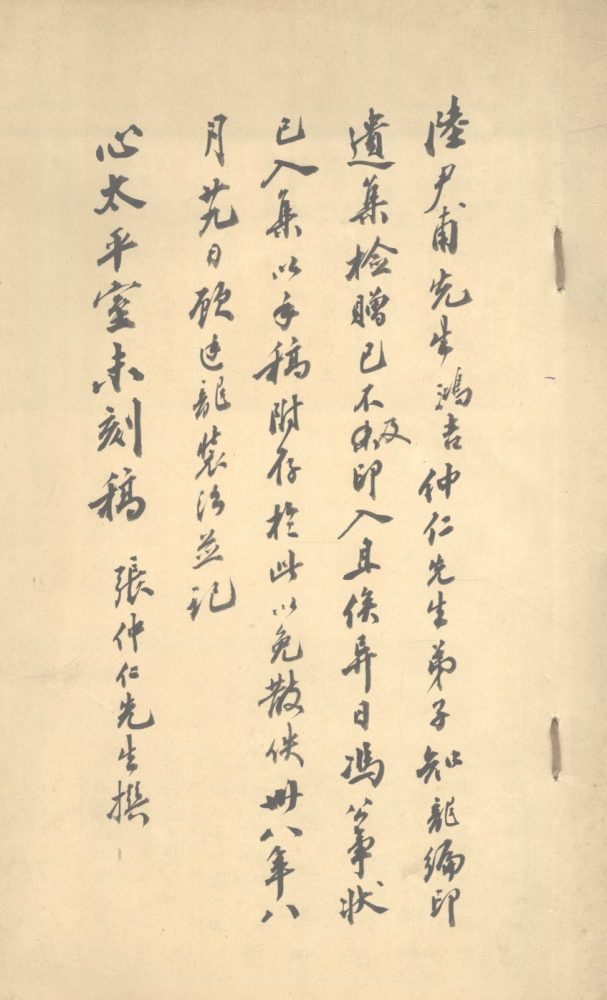 陸尹甫先生鴻吉仲仁先生弟子知龍編印
遺集檢贈已不及印入且俟異日馮公事狀
已入集以手稿附存於此以免散佚卅八年八
月廿九日顧廷龍裝治並記
心太平室未刻稿 張仲仁先生撰